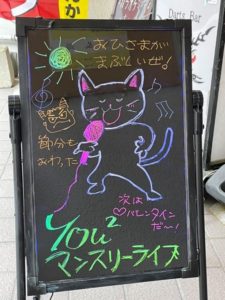 おひさまが
まぶしいぜ!
節分も
おわった
次は
♡バレンタイン
だ〜!
You²
マンスリーライブ
Darts Bar